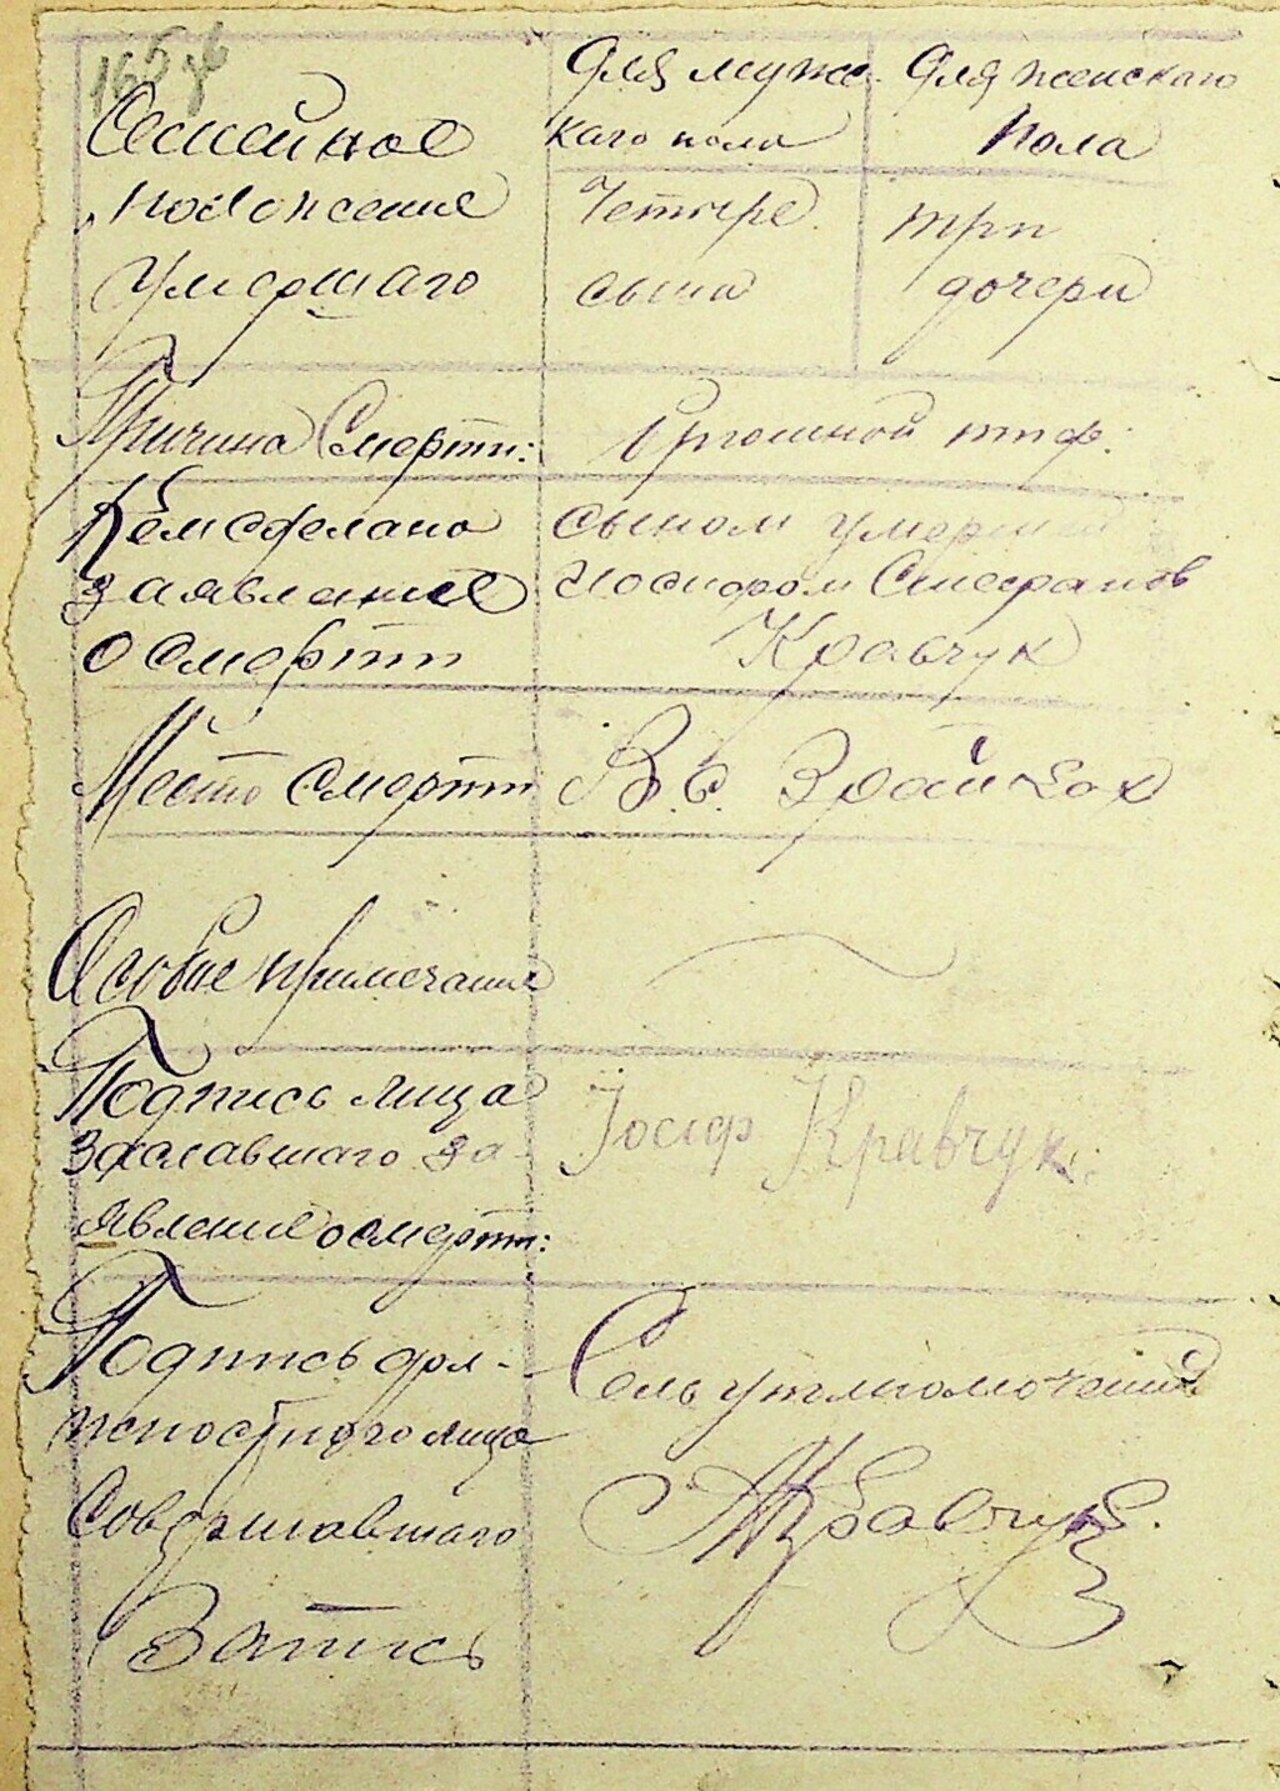 165
Для мужс- Для женскаго
каго пола пола
Семейное
положение Четыре три
Умершаго сына дочери
Причина Смерти: Брюшной тиф.
Кем сделано сыном умерш
заявление Иосифом Стефанов
о смерти Кравчук
Место смерти В с. Зрайках
Особые примечания
Подпись лица Іосиф Кравчук.
заявление о смерти:
Подпись дол- Сель уполномочений
жностного лица
Совершавшаго Кравчук.
Запись